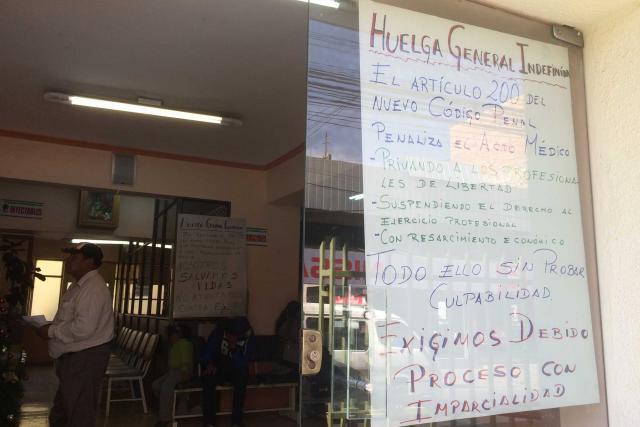 INYECTABLES
HUELGA GENERAL INDEFINIDA
SALVAMOS
VIDAS
HUELGA GENERAL INDEFINIDA
EL ARTÍCULO 200 DEL
NUEVO CÓDIGO PENAL
PENALIZA EL ACTO MÉDICO
- PRIVANDO A LOS PROFESIONA-
LES DE LIBERTAD
- SUSPENDIENDO EL DERECHO AL
EJERCICIO PROFESIONAL
- CON RESARCIMIENTO ECONÓMICO
TODO ELLO SIN PROBAR
CULPABILIDAD.
EXIGIMOS DEBIDO
PROCESO CON
IMPARCIALIDAD